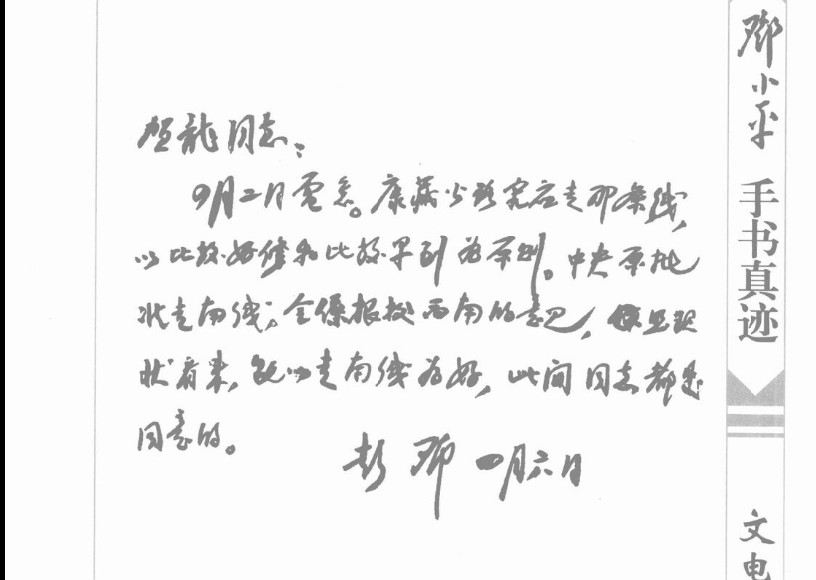 贺龙同志：
四月二日电悉。康藏公路究应走那条线，
以比较好修和比较早到为原则。中央原批
准走南线，全系根据西南的意见，但照现
状看来，既以走南线为好，此间同志都是
同意的。
彭 邓 四月六日
邓小平
手书真迹
文电